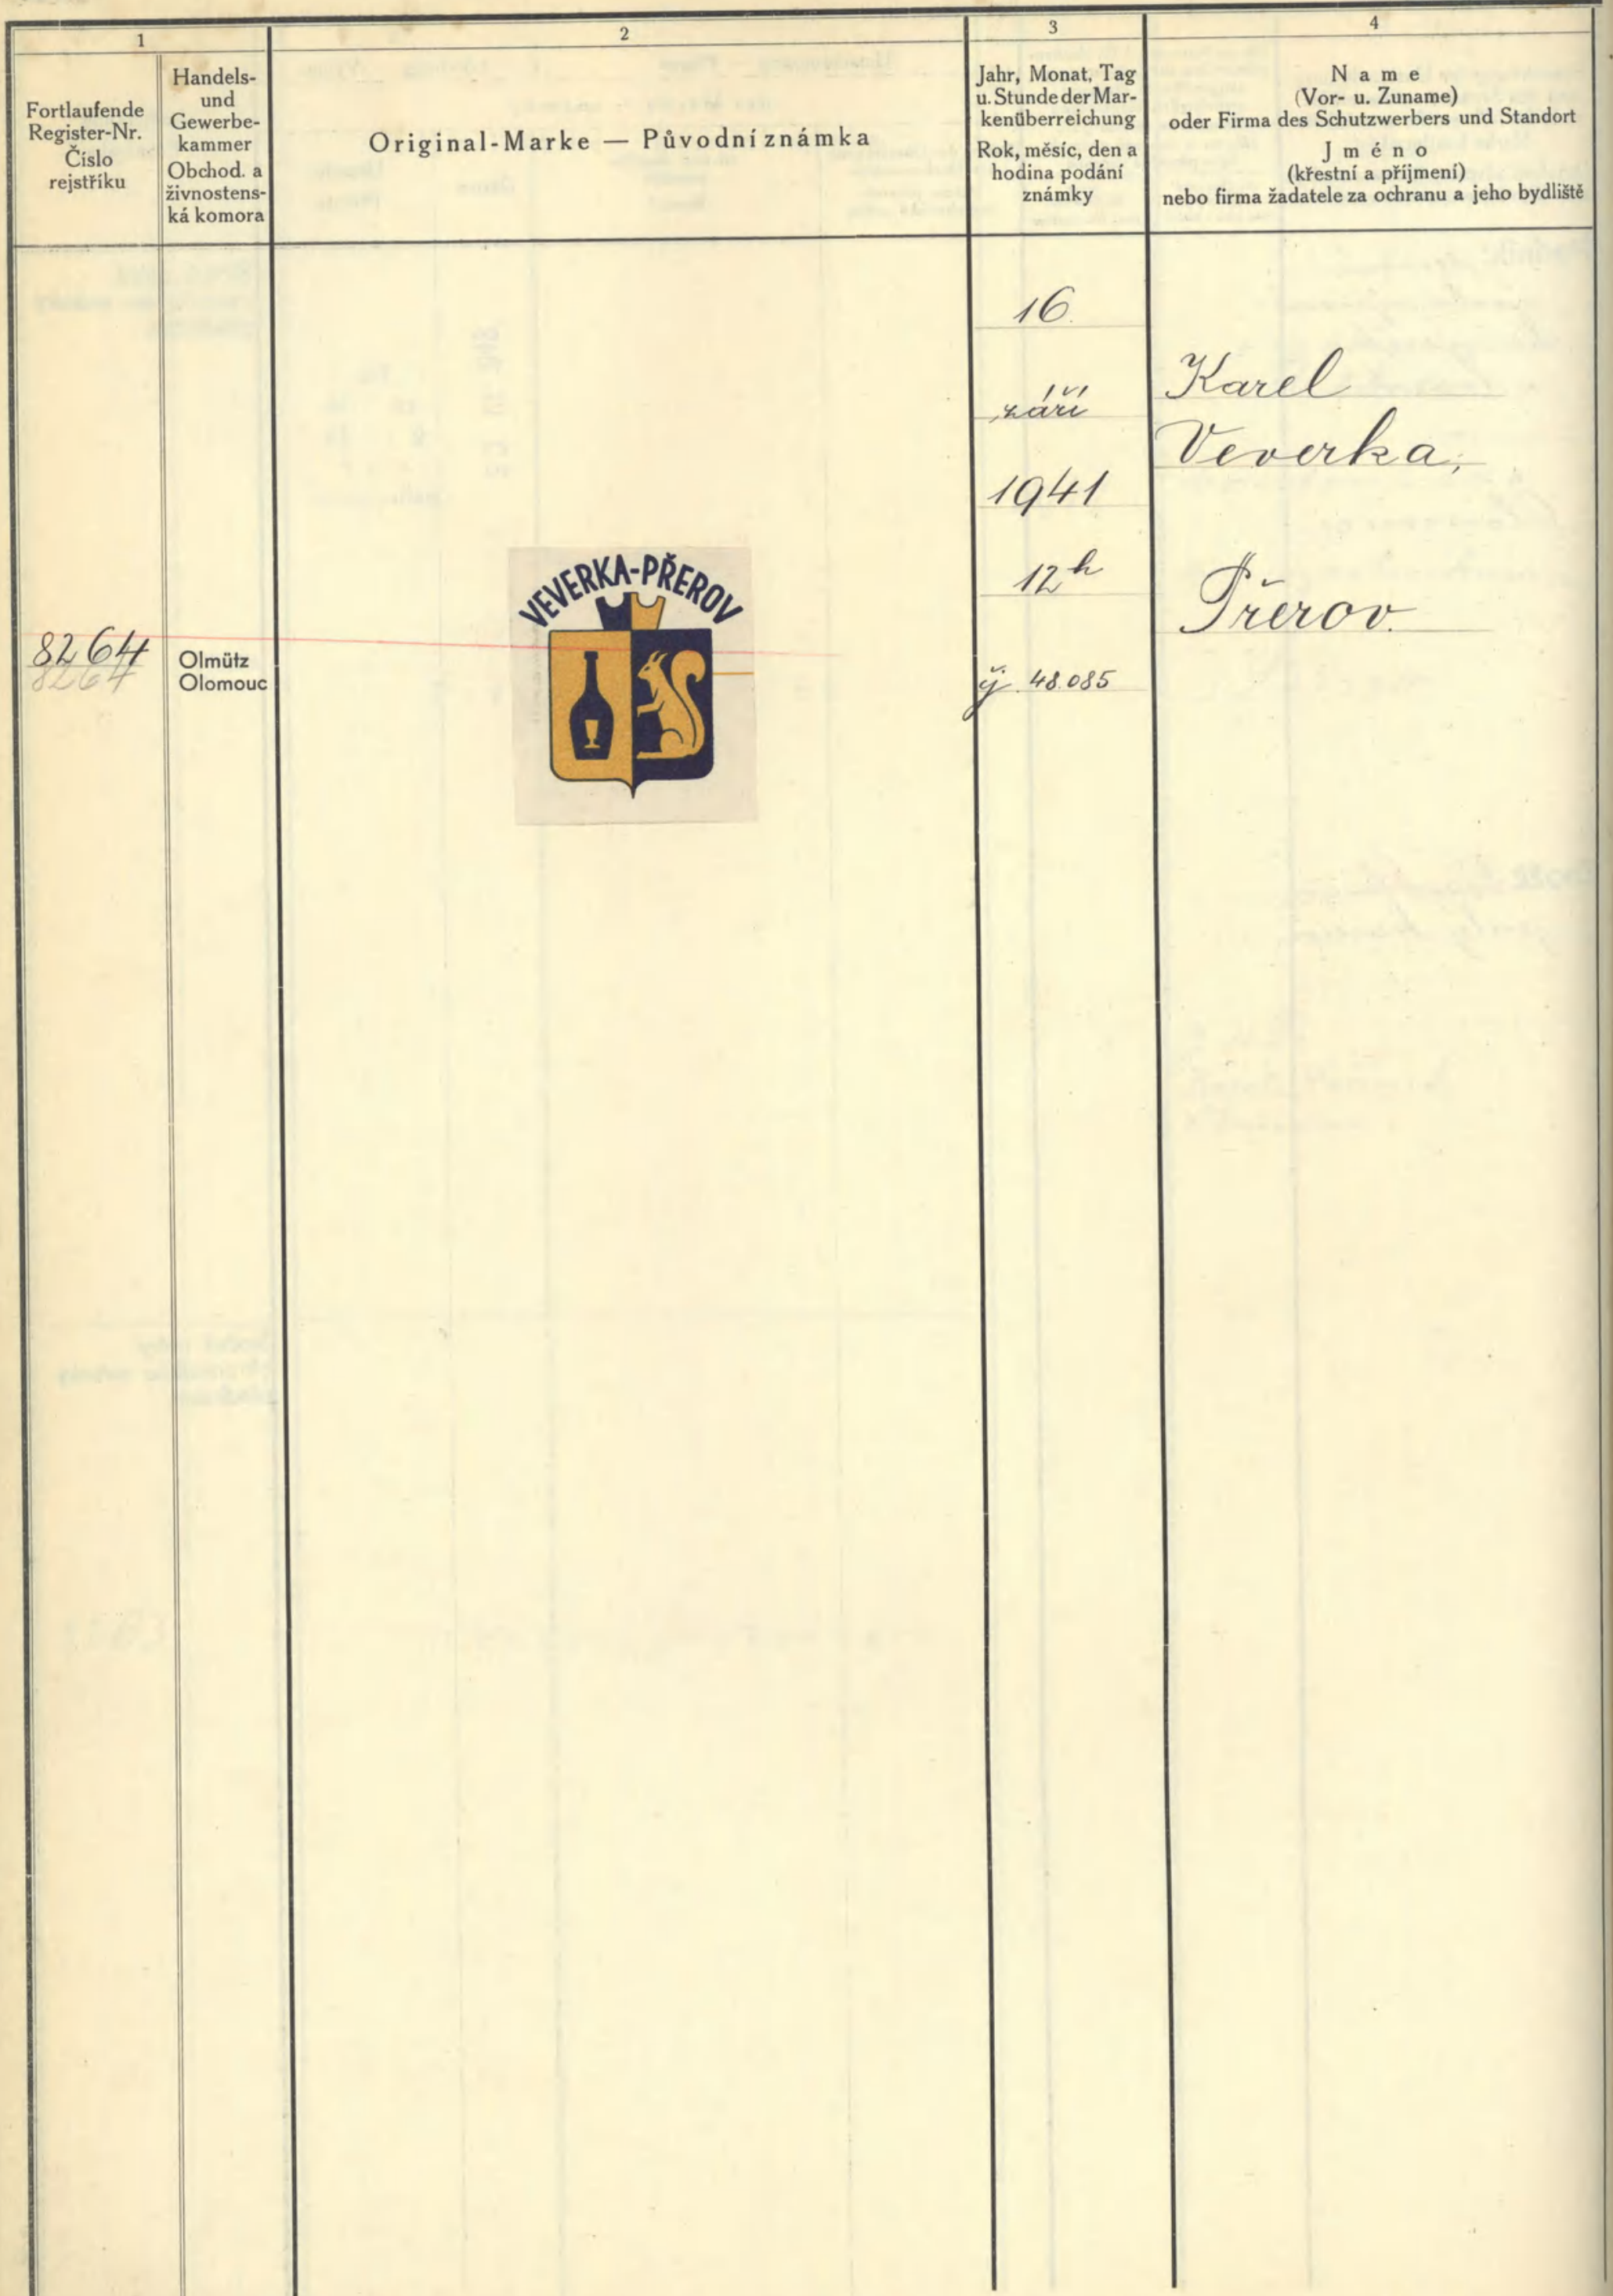 1
2
3
4
Fortlaufende
Register-Nr.
Číslo
rejstříku
Handels-
und
Gewerbe-
kammer
Obchod. a
živnostens-
ká komora
Original-Marke — Původní známka
Jahr, Monat, Tag
u. Stunde der Mar-
kenüberreichung
Rok, měsíc, den a
hodina podání
známky
Name
(Vor- u. Zuname)
oder Firma des Schutzwerbers und Standort
Jméno
(křestní a příjmení)
nebo firma žadatele za ochranu a jeho bydliště
8264
8264
Olmütz
Olomouc
VEVERKA-PŘEROV
16.
září
1941
12h
48.085
Karel
Veverka,
Přerov.